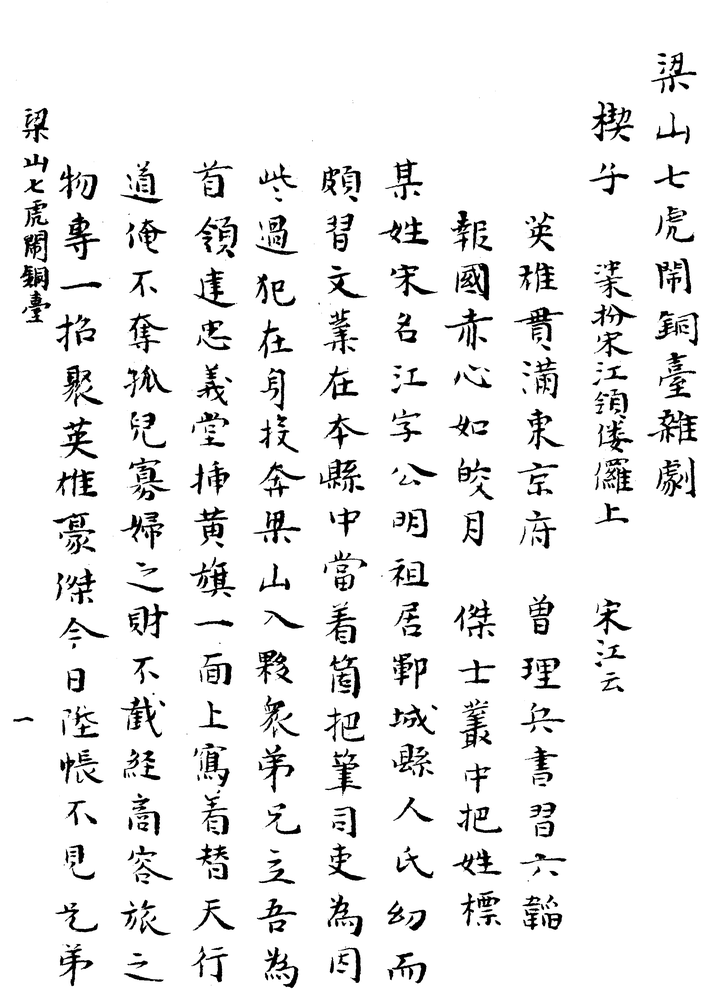 梁山七虎鬧銅臺雜劇
楔子　冲末扮宋江領僂儸上　宋江云
英雄貫滿東京府　曾理兵書習六韜
報國赤心如皎月　傑士叢中把姓標
某姓宋名江字公明祖居鄆城縣人氏幼而
頗習文業在本縣中當着箇把筆司吏為因
些過犯在身投奔梁山入夥衆弟兄立吾為
首領建忠義堂挿黄旗一面上寫着替天行
道俺不奪孤兒寡婦之財不截經商客旅之
物專一招聚英雄豪傑今日陞帳不見兄弟
梁山七虎鬧銅臺
一